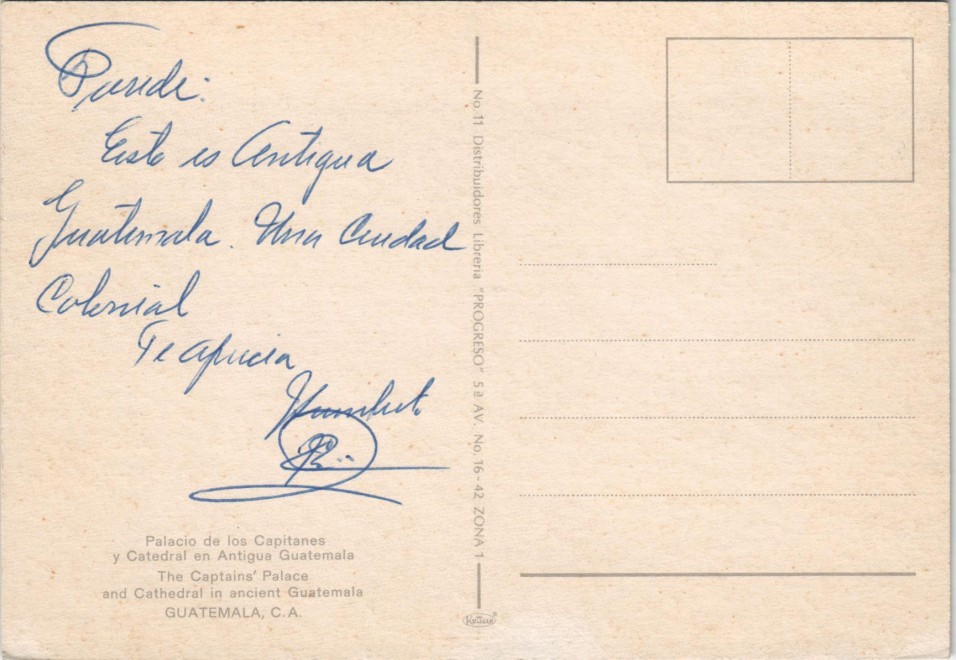 Esto es Antigua
Guatemala. Una Ciudad
Colonial
Te aprecia
Palacio de los Capitanes
y Catedral en Antigua Guatemala
The Captains' Palace
and Cathedral in ancient Guatemala
GUATEMALA, C.A.
No. 11 Distribuidores Libreria "PROGRESO" 5ª AV. No. 16-42 ZONA 1